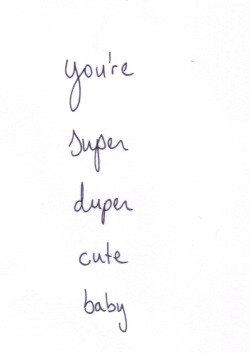 you're
super
duper
cute
baby